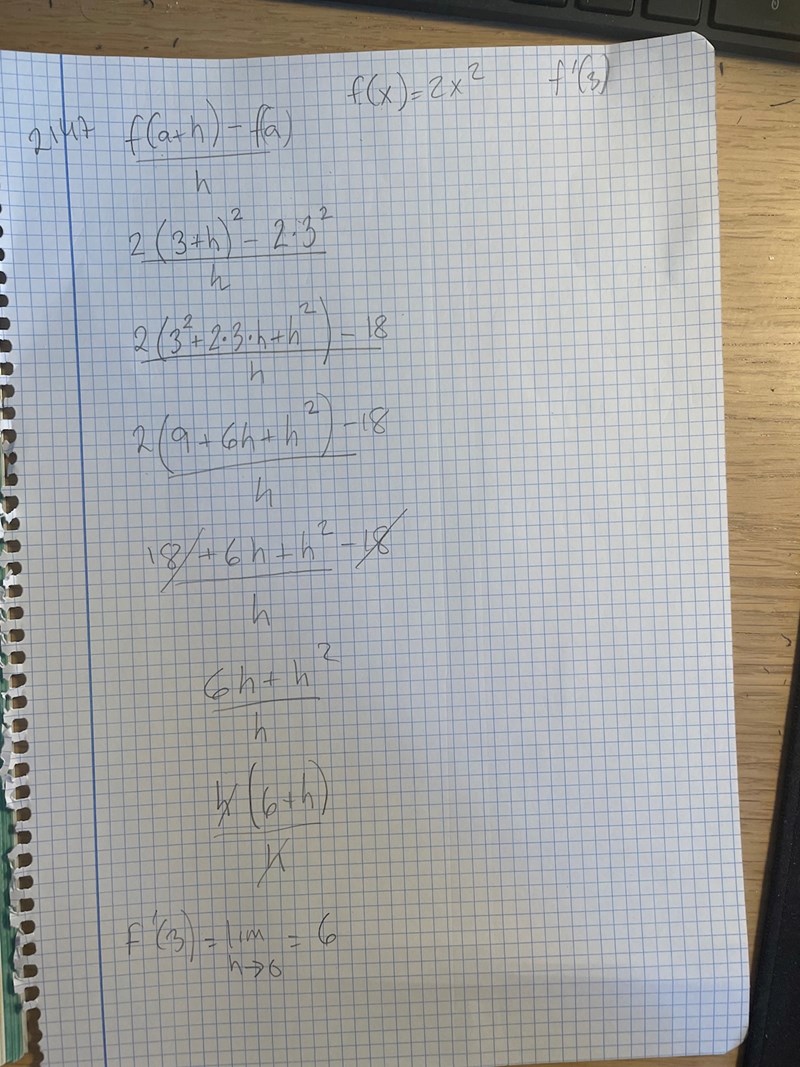 f(x)=2x² f'(3)
2147 f(a+h) - f(a)
h
2(3+h)² - 2·3²
h
2(3²+2·3·h+h²) - 18
h
2(9+6h+h²) - 18
h
18+6h+h² - 18
h
6h+h²
h
h(6+h)
h
f'(3) = lim = 6
h→0